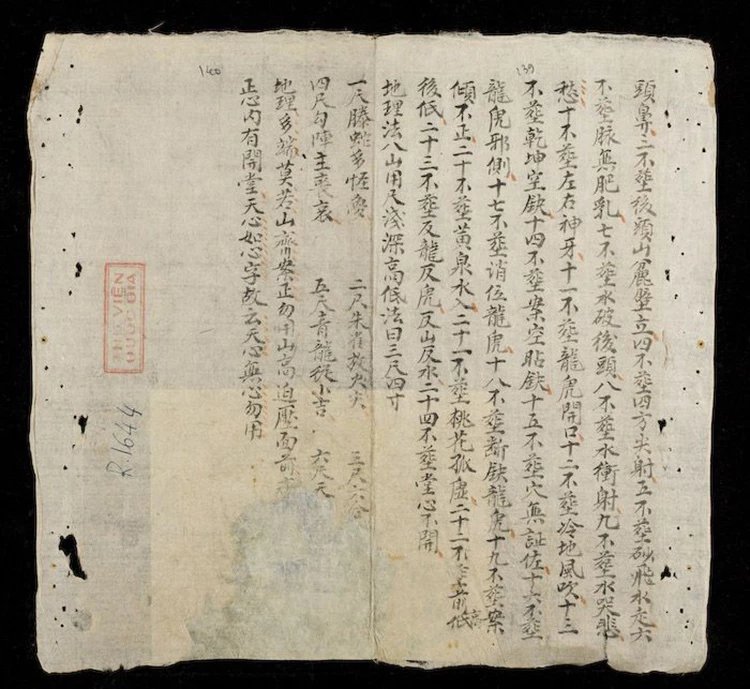 139
頭鼻三不𦵏後頭山麄壁立四不𦵏四方尖射五不𦵏砂飛水走六
不𦵏脉無肥乳七不𦵏水破後頭八不𦵏水衝射九不𦵏水哭悲
愁十不𦵏左右神牙十一不𦵏龍虎開口十二不𦵏冷地風吹十三
不𦵏乾坤空缺十四不𦵏案空貼缺十五不𦵏穴無証佐十六不𦵏
龍虎邪側十七不𦵏消位龍虎十八不𦵏斷缺龍虎十九不𦵏案
傾不正二十不𦵏黃泉水入二十一不𦵏桃花孤虛二十二不𦵏前高
後低二十三不𦵏反龍反虎反山反水二十四不𦵏堂心不開
地理法八山用尺淺深高低法曰三尺四寸
140
一尺螣蛇多怪夢 二尺朱雀救火灾 三尺六合
四尺勾陣主喪哀 五尺青龍從小吉 六尺天
地理多端莫若山齊案正勿用山高迫壓面前
正心內有開堂天心如心字故云天心無心勿用
THƯ VIỆN
QUỐC GIA
R.1644